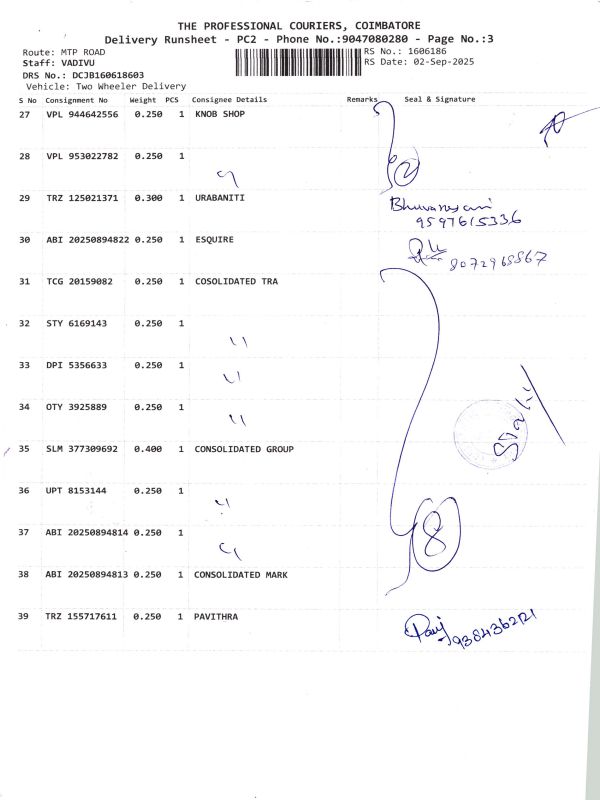 THE PROFESSIONAL COURIERS, COIMBATORE
Delivery Runsheet - PC2 - Phone No.:9047080280 - Page No.:3
Route: MTP ROAD RS No.: 1606186
Staff: VADIVU RS Date: 02-Sep-2025
DRS No.: DCJB160618603
Vehicle: Two Wheeler Delivery
S No Consignment No Weight PCS Consignee Details Remarks Seal & Signature
27 VPL 944642556 0.250 1 KNOB SHOP
28 VPL 953022782 0.250 1
2
29 TRZ 125021371 0.300 1 URABANITI
9597615336
30 ABI 20250894822 0.250 1 ESQUIRE
31 TCG 20159082 0.250 1 COSOLIDATED TRA
32 STY 6169143 0.250 1
33 DPI 5356633 0.250 1
34 OTY 3925889 0.250 1
35 SLM 377309692 0.400 1 CONSOLIDATED GROUP
36 UPT 8153144 0.250 1
37 ABI 20250894814 0.250 1
8
38 ABI 20250894813 0.250 1 CONSOLIDATED MARK
39 TRZ 155717611 0.250 1 PAVITHRA